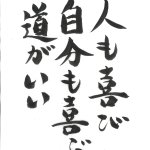 人も喜び
自分も喜ぶ
道がいい